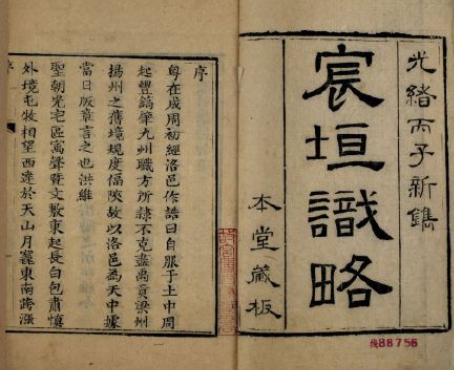 光緒丙子新鐫
宸垣識略
本堂藏板
88756
序
粵在成周初經洛邑作誥曰自服于土中周
起豐鎬肇九州職方所隸不克盡禹貢梁州
揚州之舊境規度偪陜故以洛邑為天中據
當日版章言之也洪維
聖朝光宅區寓聲暨文敷東起長白包肅慎
外境屯牧相望西達於天山月竁東南跨漲